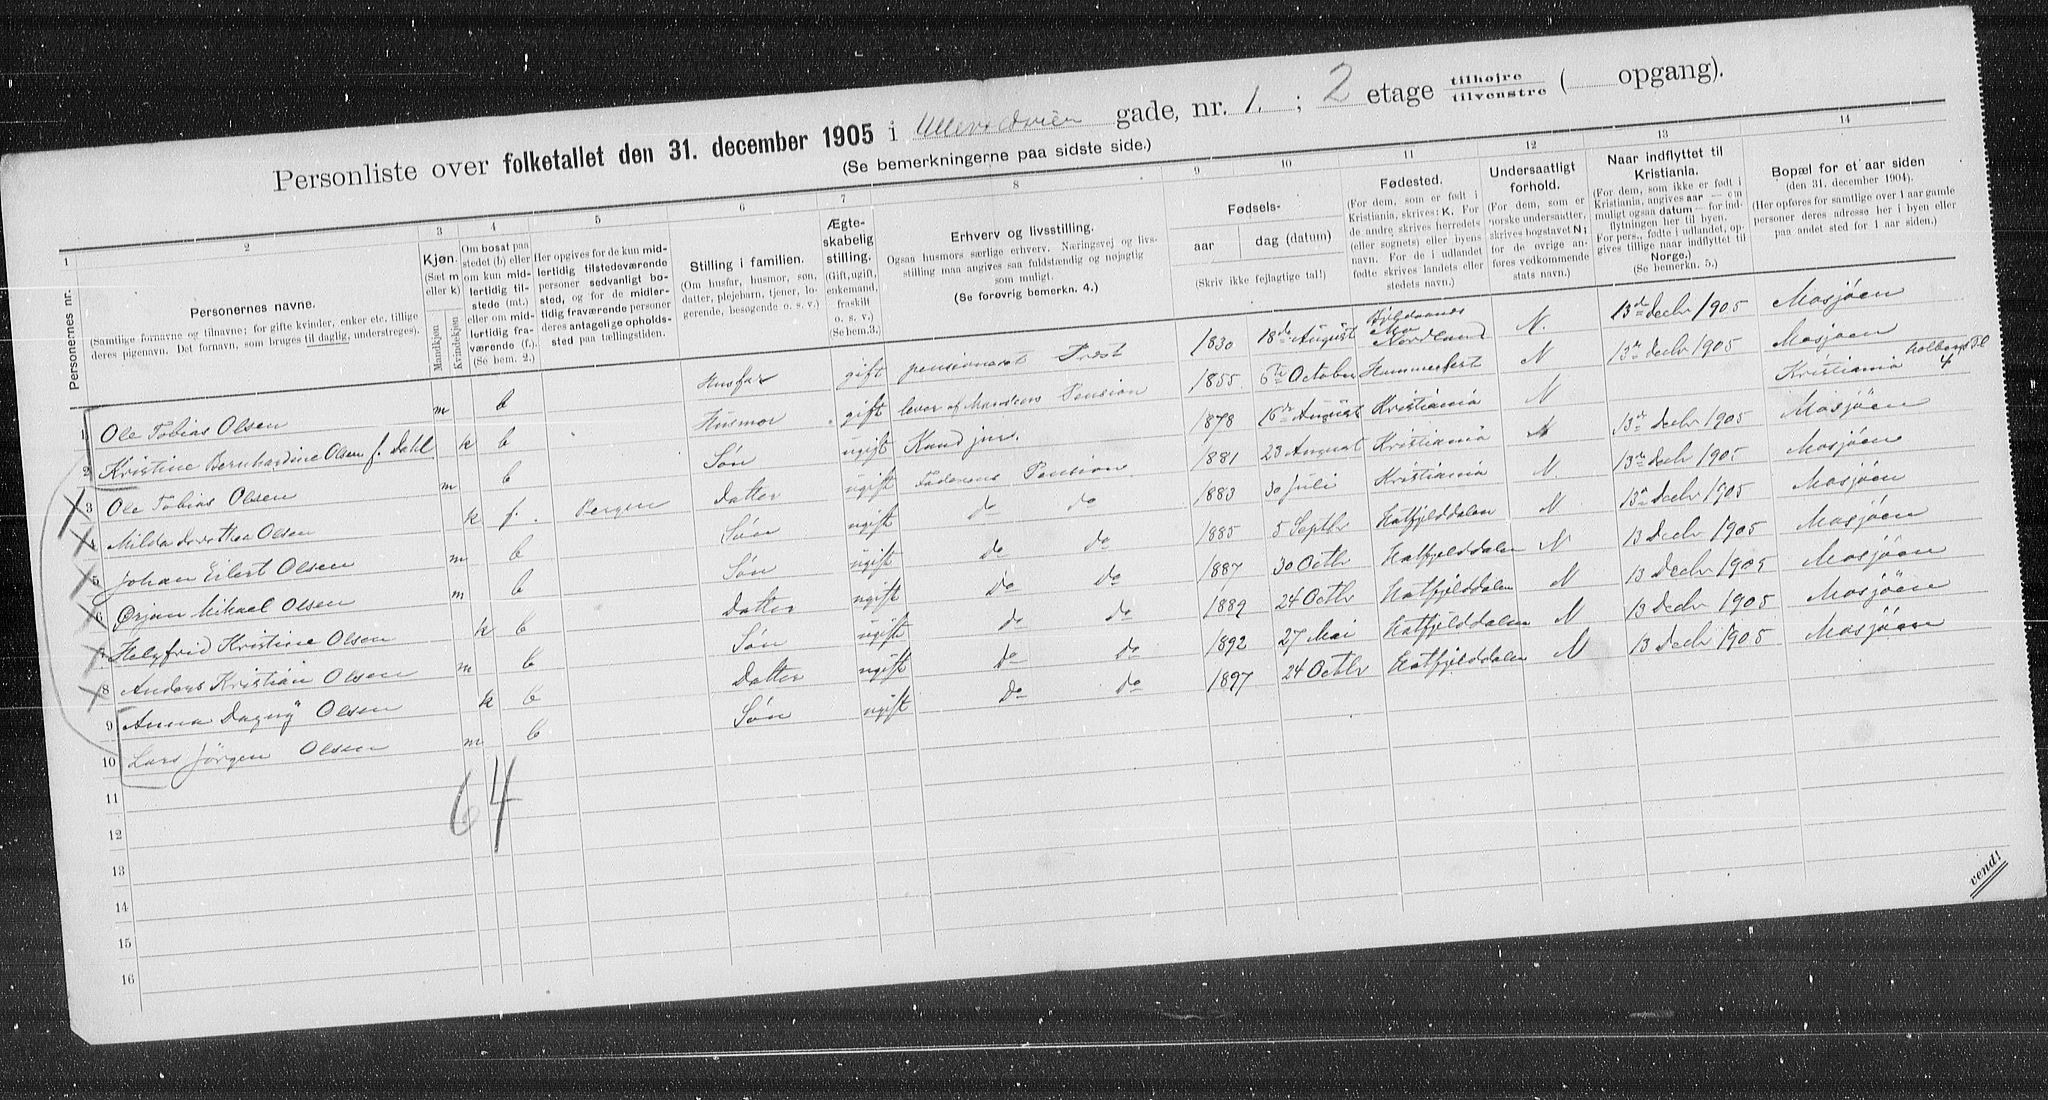 Personliste over folketallet den 31. december 1905 i Ullevoldsveien gade, nr. 1. ; 2 etage tilhøjre tilvenstre ( opgang).
(Se bemerkningerne paa sidste side.)
1 2 3 4 5 6 7 8 9 10 11 12 13 14
Personernes nr.
Personernes navne.
(Samtlige fornavne og tilnavne; for gifte kvinder, enker etc. tillige
deres pigenavn. Det fornavn, som bruges til daglig, understreges).
Kjøn.
(Sæt m
eller k)
Mandkjøn
Kvindekjøn
Om bosat paa
stedet (b) eller
om kun mid-
lertidig til-
stede (mt.)
eller om mid-
lertidig fra-
værende (f.).
(Se bem. 2.)
Her opgives for de kun mid-
lertidig tilstedeværende
personer sedvanligt bo-
sted, og for de midler-
tidig fraværende personer
deres antagelige opholds-
sted paa tællingstiden.
Stilling i familien.
(Om husfar, husmor, søn,
datter, plejebarn, tjener, lo-
gerende, besøgende o. s. v.)
Ægte-
skabelig
stilling.
(Gift, ugift,
enkemand,
fraskilt
o. s. v.)
(Se bem. 3.)
Erhverv og livsstilling.
Ogsaa husmors særlige erhverv. Næringsvej og livs-
stilling maa angives saa fuldstændig og nøjagtig
som muligt.
(Se forøvrig bemerkn. 4.)
Fødsels-
aar dag (datum)
(Skriv ikke fejlagtige tal!)
Fødested.
(For dem, som er født i
Kristiania, skrives: K. For
de andre skrives herredets
(eller sognets) eller byens
navn. For de i udlandet
fødte skrives landets eller
stedets navn.)
Undersaatligt
forhold.
(For dem, som er
norske undersaatter,
skrives bogstavet N;
for de øvrige an-
føres vedkommende
stats navn.)
Naar indflyttet til
Kristiania.
(For dem, som ikke er født i
Kristiania, angives aar — om
muligt ogsaa datum — for ind-
flytningen her til byen.
For pers., fødte i udlandet, op-
gives tillige naar indflyttet til
Norge.)
(Se bemerkn. 5.)
Bopæl for et aar siden
(den 31. december 1904).
(Her opføres for samtlige over 1 aar gamle
personer deres adresse her i byen eller
paa andet sted for 1 aar siden.)
1 Ole Tobias Olsen m b Husfar gift pensioneret Prest 1830 18de August Mo Nordland N. 13de Decbr 1905 Mosjøen
2 Kristine Bernhardine Olsen f. Dahl k b Husmor gift lever af Mandens Pension 1855 6te October Hammerfest N 13de Decbr 1905 Mosjøen
3 Ole Tobias Olsen m b Søn ugift Kand jur. 1878 15de August Kristiania N Kristiania Holbergs Pl 4
4 Milda Dorothea Olsen k f. Bergen Datter ugift Faderens Pension 1881 23 August Kristiania N 13de Decbr 1905 Mosjøen
5 Johan Eilert Olsen m b Søn ugift do do 1883 30 Juli Kristiania N 13de Decbr 1905 Mosjøen
6 Ørjan Mikael Olsen m b Søn ugift do do 1885 5 Septbr Hatfjelddalen N 13de Decbr 1905 Mosjøen
7 Helgfrid Kristine Olsen k b Datter ugift do do 1887 30 Octbr Hatfjelddalen N 13 Decbr 1905 Mosjøen
8 Anders Kristian Olsen m b Søn ugift do do 1889 24 Octbr Hatfjelddalen N 13 Decbr 1905 Mosjøen
9 Anna Dagny Olsen k b Datter ugift do do 1892 27 Mai Hatfjelddalen N 13 Decbr 1905 Mosjøen
10 Lars Jørgen Olsen m b Søn ugift do do 1897 24 Octbr Hatfjelddalen N 13 Decbr 1905 Mosjøen
11
12
13
14
15
16
6 4
vend!